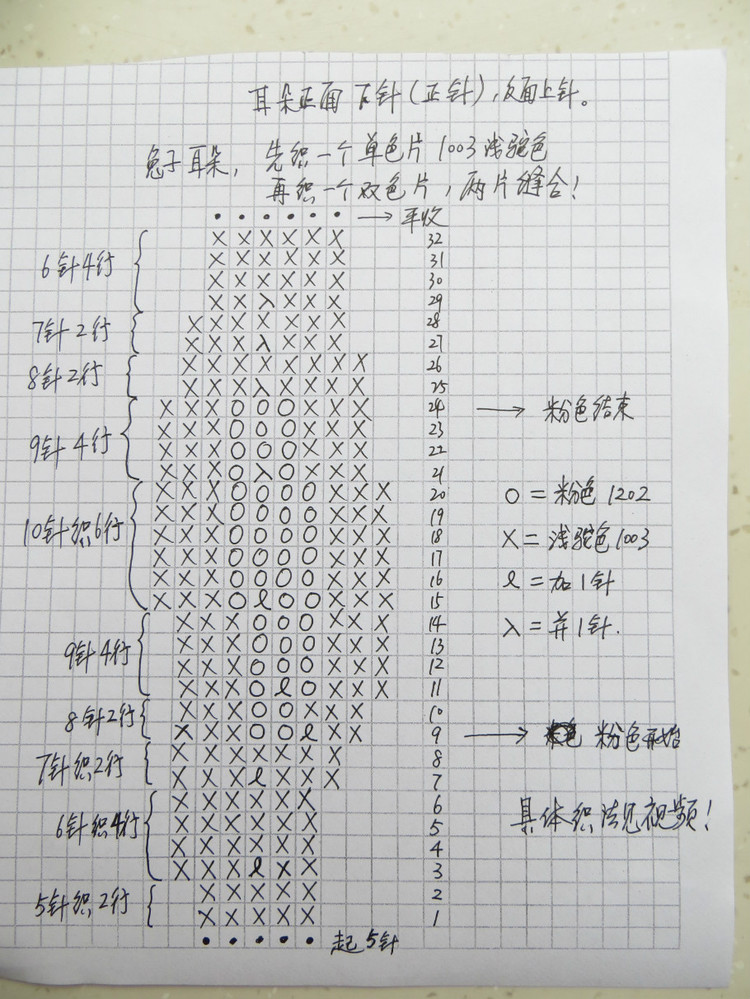 耳朵正面下针(正针),反面上针。
兔子耳朵, 先织一个单色片1003浅驼色
再织一个双色片,两片缝合!
• • • • • • → 平收
X X X X X X 32
6针4行 X X X X X X 31
X X X X X X 30
X X λ X X X 29
7针2行 X X X X X X X 28
X X X λ X X X 27
8针2行 X X X X X X X X 26
X X X λ X X X X 25
X X X O O O X X X 24 → 粉色结束
X X X O O O X X X 23
9针4行 X X X O O O X X X 22
X X X O λ O X X X 21
X X X O O O O X X X 20 O = 粉色1202
X X X O O O O X X X 19
10针织6行 X X X O O O O X X X 18 X = 浅驼色1003
X X X O O O O X X X 17
X X X O O O O X X X 16 ℓ = 加1针
X X X O ℓ O O X X X 15
X X X O O O X X X 14 λ = 并1针.
9针4行 X X X O O O X X X 13
X X X O O O X X X 12
X X X O ℓ O X X X 11
8针2行 X X X O O X X X 10
X X X O O ℓ X X 9 → 粉色开始
7针织2行 X X X X X X X 8
X X X ℓ X X X 7
X X X X X X 6
6针织4行 X X X X X X 5 具体织法见视频!
X X X X X X 4
X X X ℓ X X 3
5针织2行 X X X X X 2
X X X X X 1
• • • • • 起5针